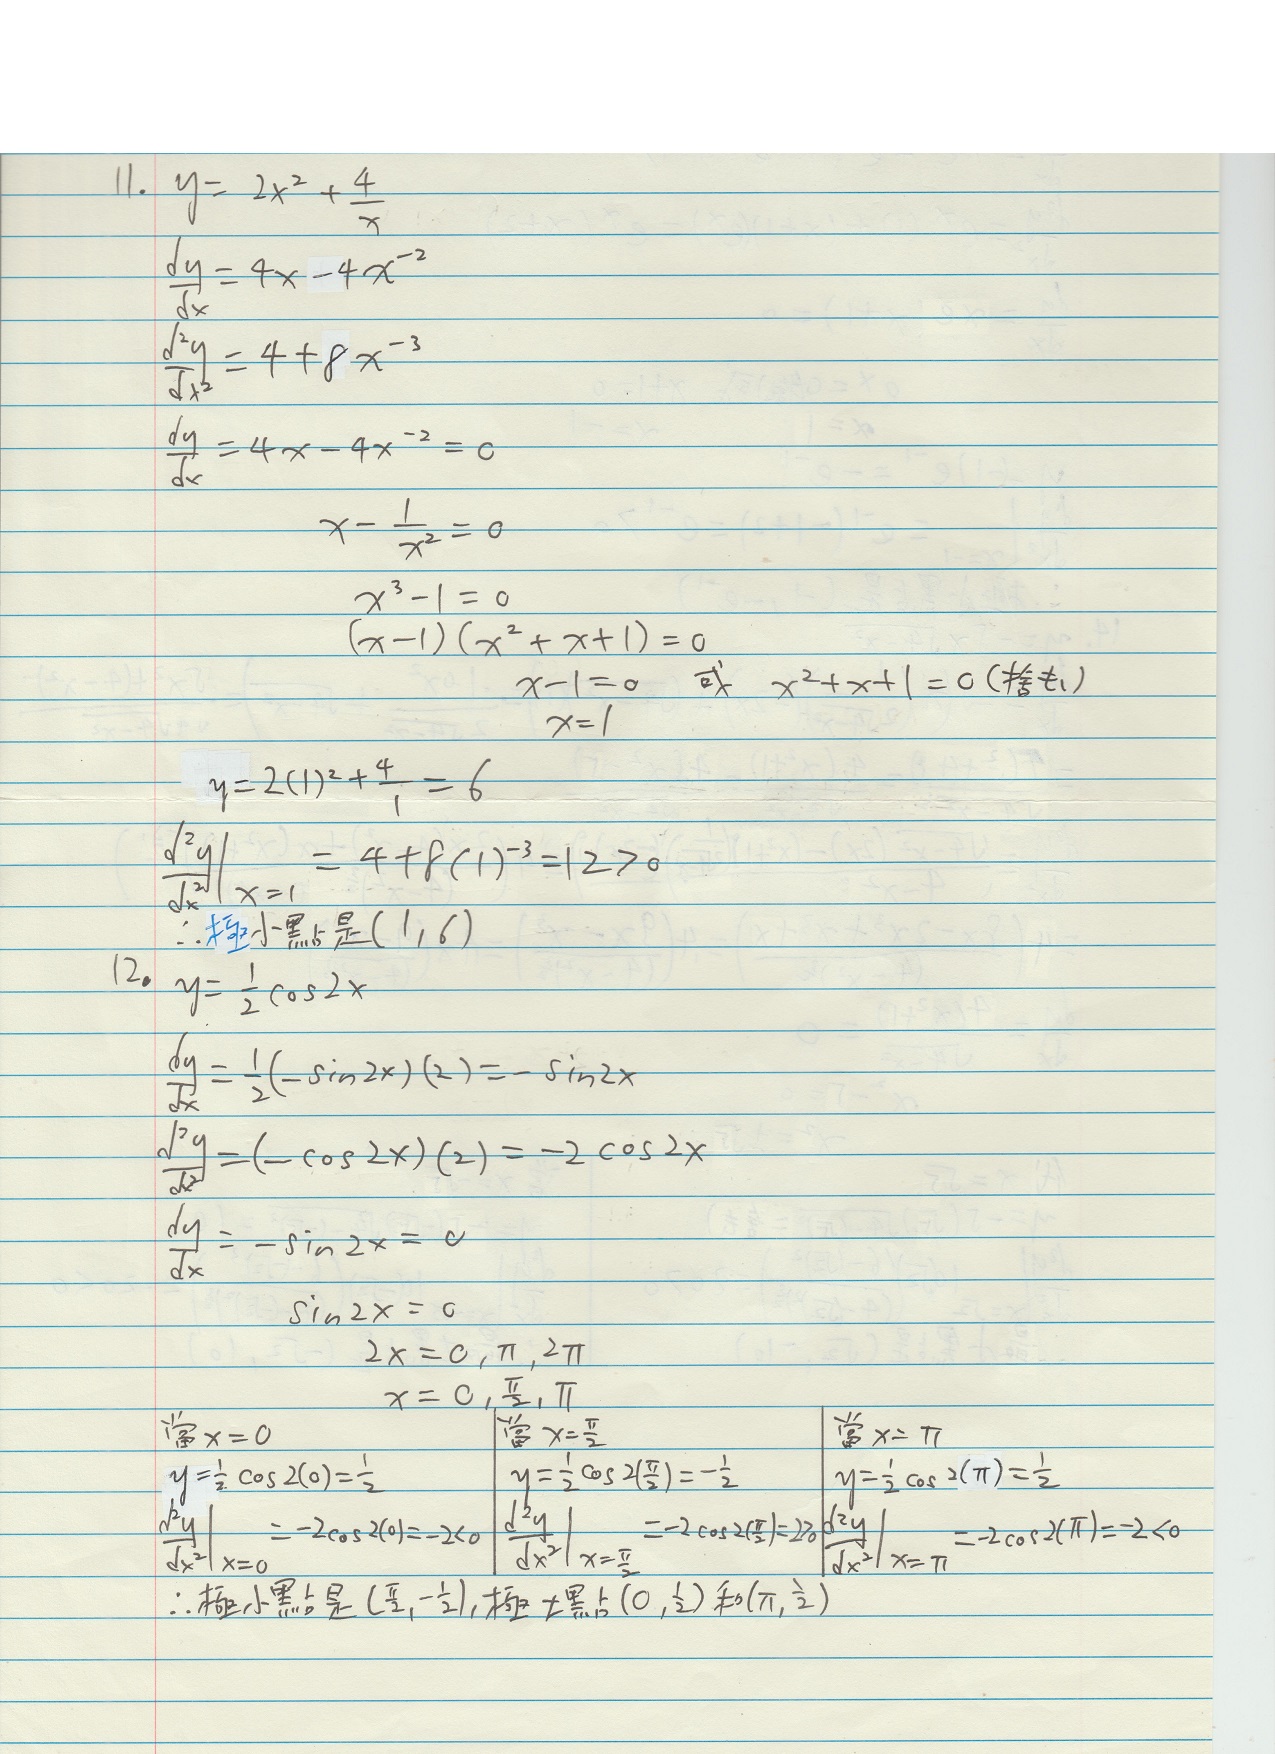 11. y = 2x² + 4/x
dy/dx = 4x - 4x⁻²
d²y/dx² = 4 + 8x⁻³
dy/dx = 4x - 4x⁻² = 0
x - 1/x² = 0
x³ - 1 = 0
(x-1)(x² + x + 1) = 0
x - 1 = 0 或 x² + x + 1 = 0 (捨去)
x = 1
y = 2(1)² + 4/1 = 6
d²y/dx²|x=1 = 4 + 8(1)⁻³ = 12 > 0
∴極小點是(1, 6)
12. y = 1/2 cos2x
dy/dx = 1/2(-sin2x)(2) = -sin2x
d²y/dx² = (-cos2x)(2) = -2cos2x
dy/dx = -sin2x = 0
sin2x = 0
2x = 0, π, 2π
x = 0, π/2, π
當 x = 0
y = 1/2 cos2(0) = 1/2
d²y/dx²|x=0 = -2cos2(0) = -2 < 0
當 x = π/2
y = 1/2 cos2(π/2) = -1/2
d²y/dx²|x=π/2 = -2cos2(π/2) = 2 > 0
當 x = π
y = 1/2 cos2(π) = 1/2
d²y/dx²|x=π = -2cos2(π) = -2 < 0
∴極小點是(π/2, -1/2), 極大點(0, 1/2)和(π, 1/2)